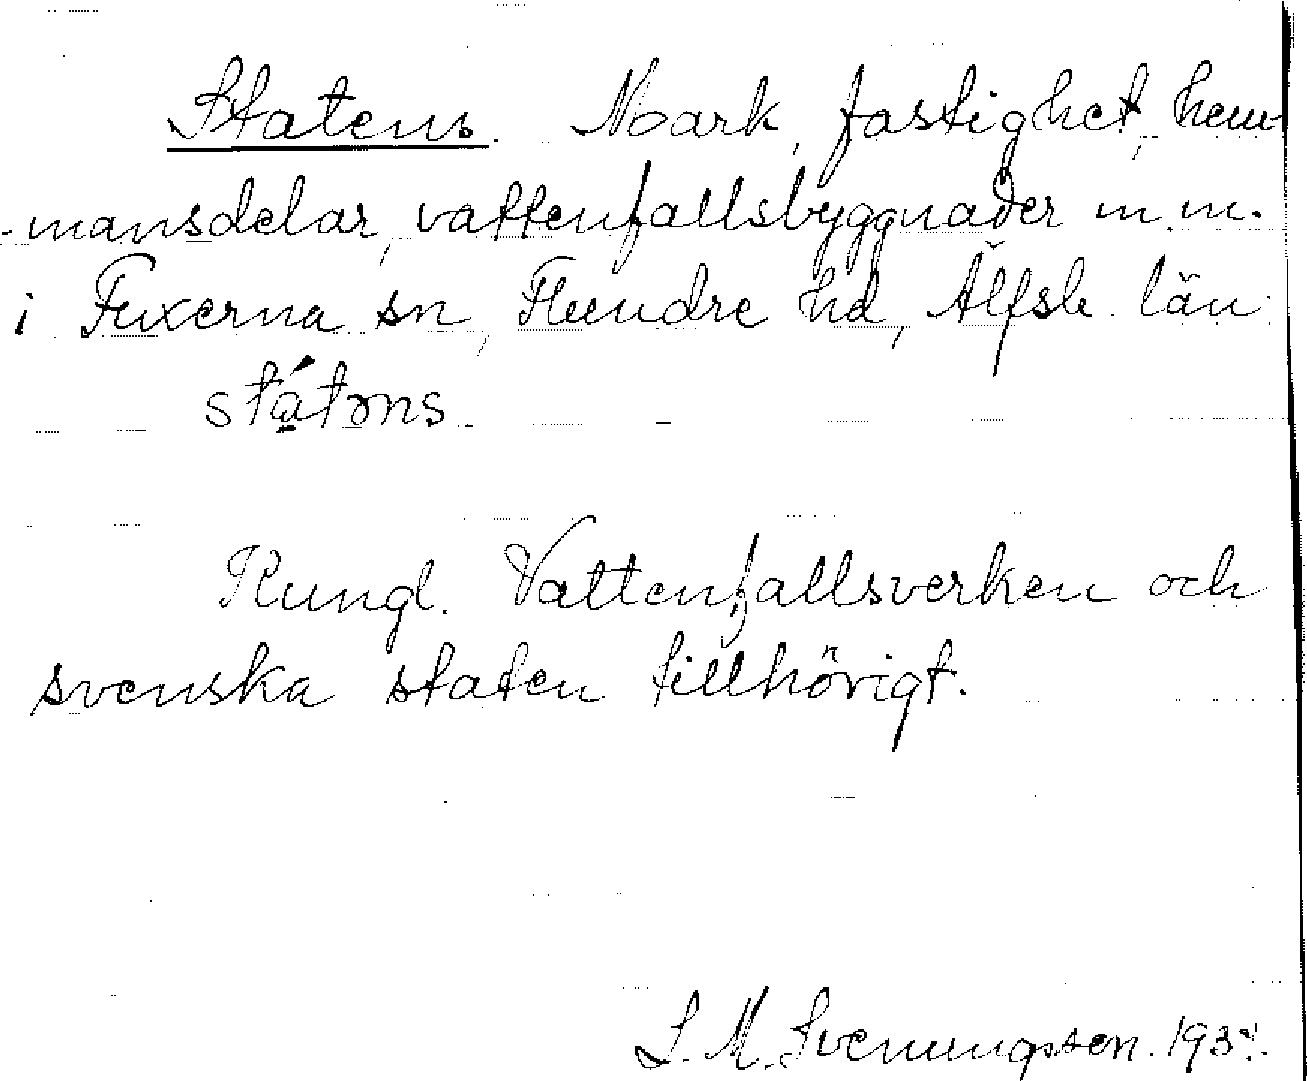 Statens. Mark, fastighet, hem-
-mansdelar, vattenfallsbyggnader m.m.
i Fuxerna sn, Flundre hd, Älfsb. län
státɔns.
Kungl. Vattenfallsverken och
svenska staten tillhörigt.
S. M. Svenungsson.